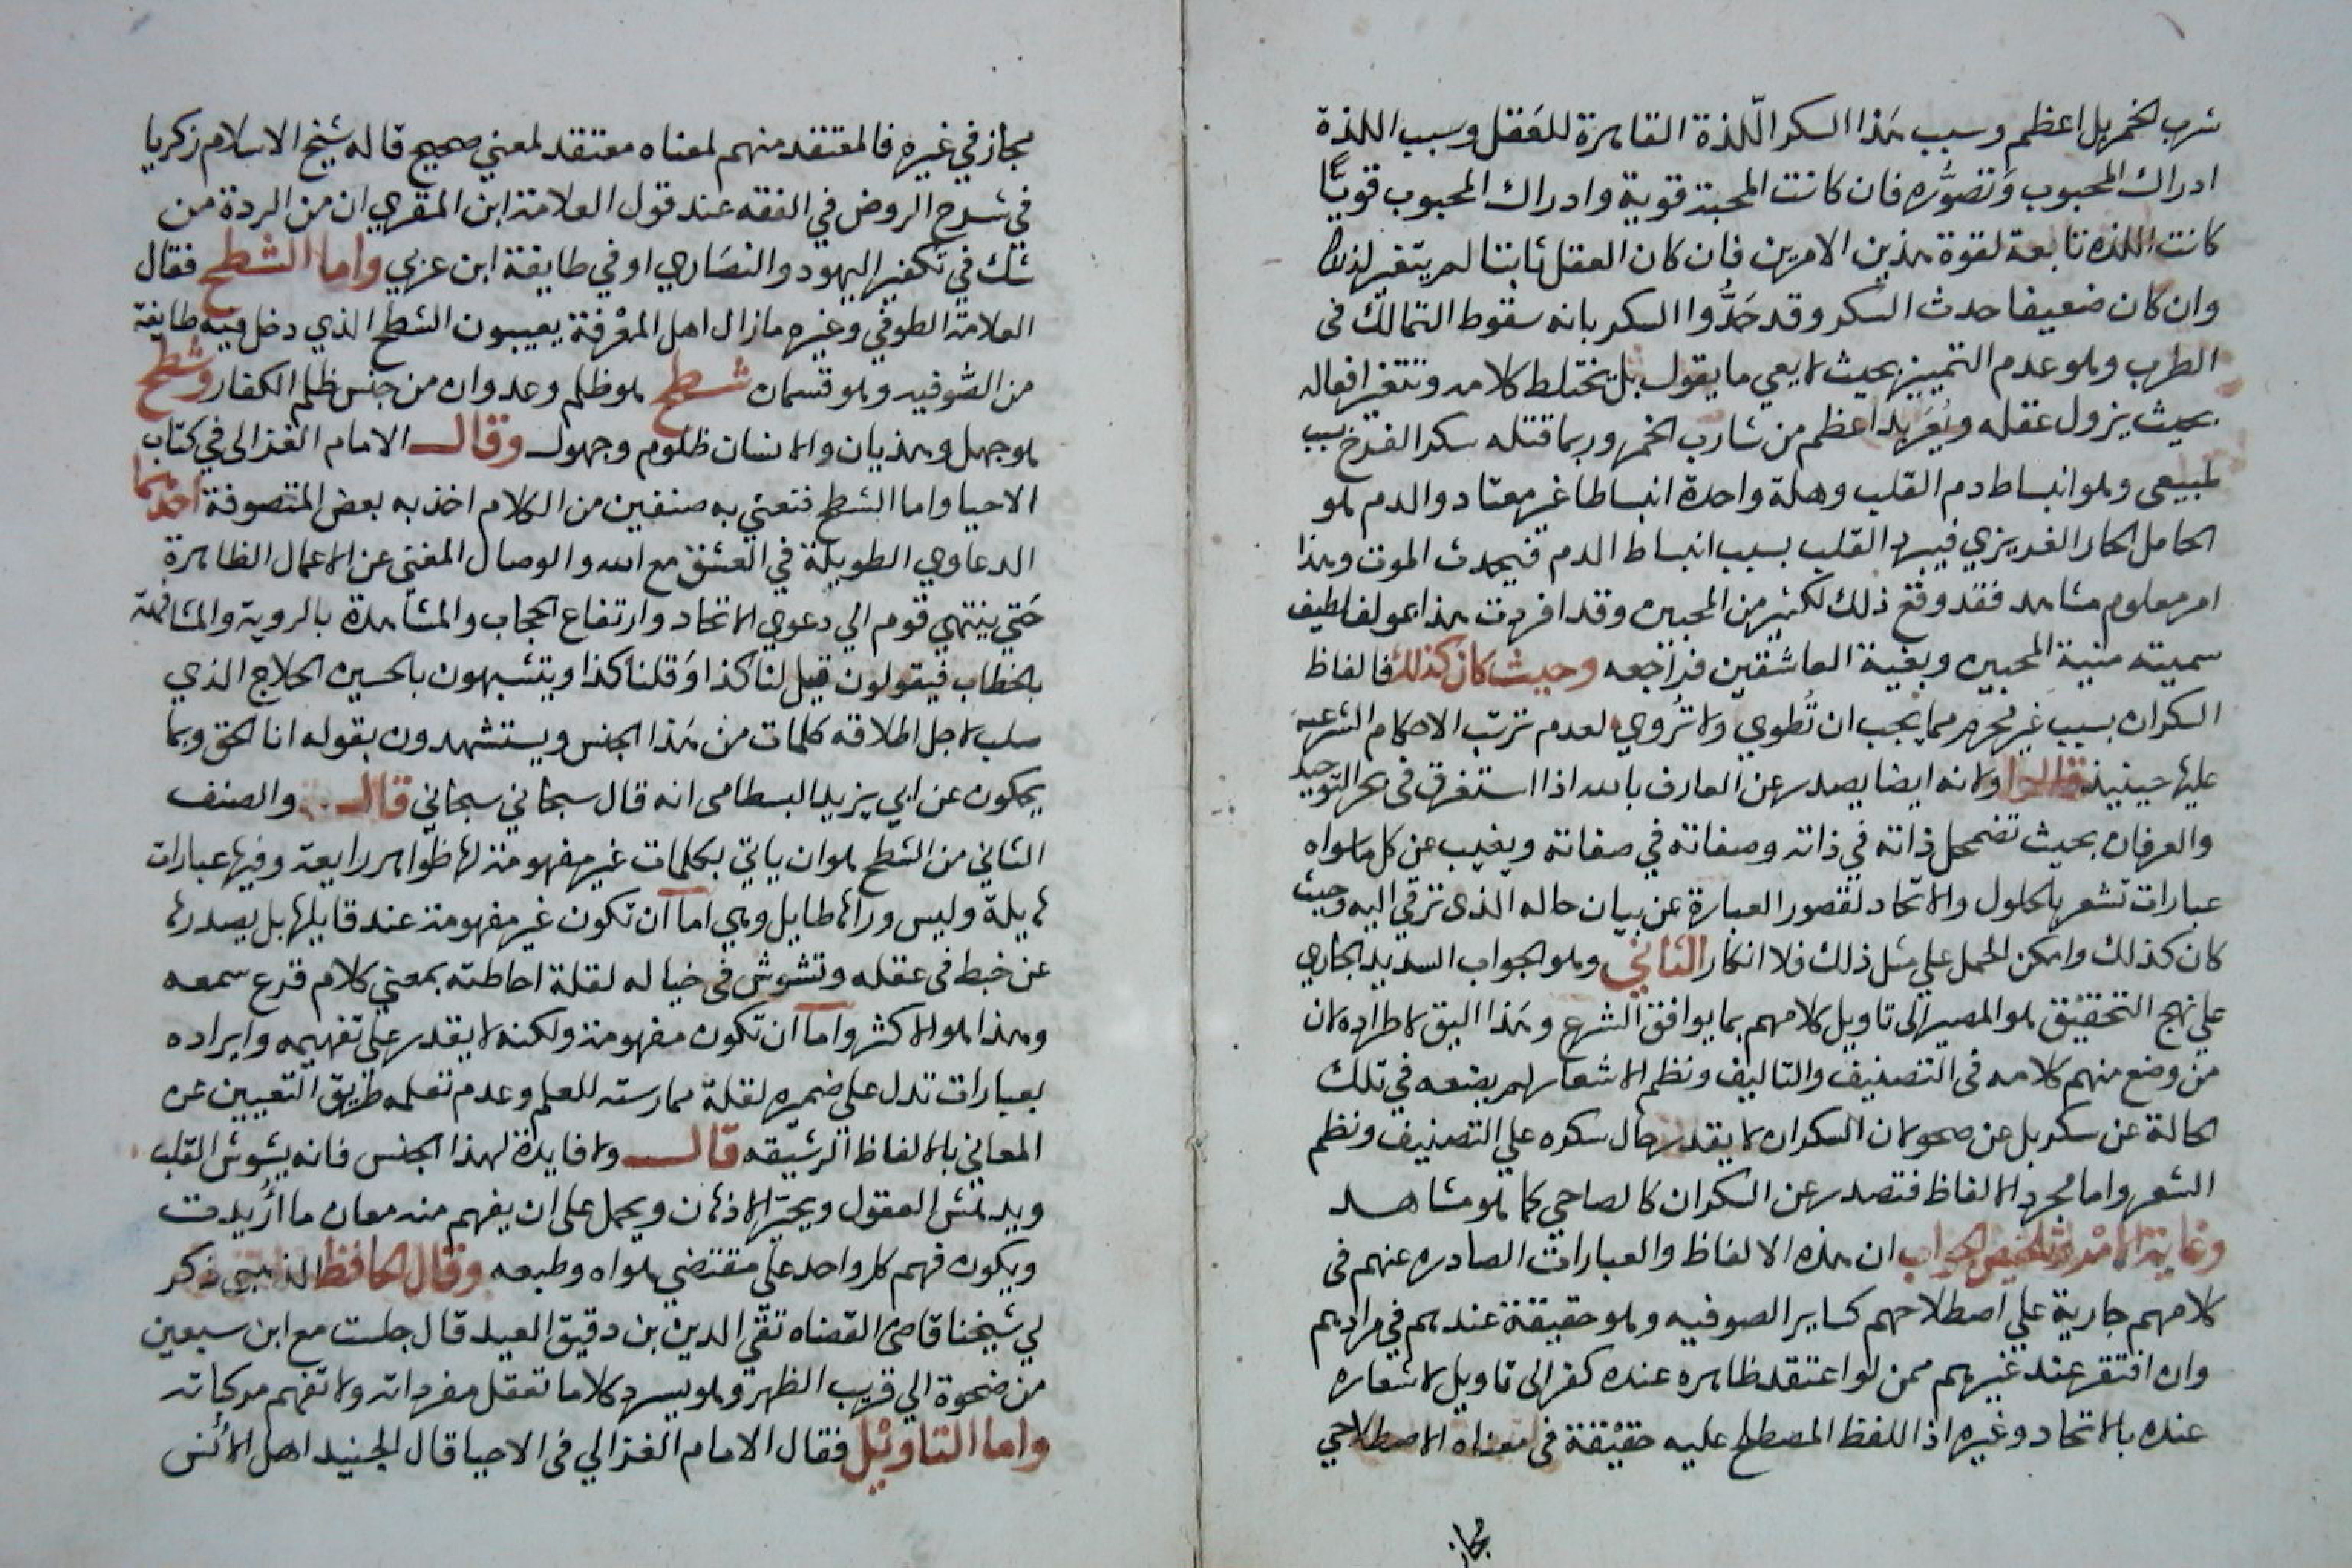 شرب الخمر بل اعظم وسبب هذا السكر اللّذة القاهرة للعَقل وسبب اللذة
ادراك المحبوب وَتصوُّره فان كانت المحبة قوية وادراك المحبوب قويًّا
كانت اللذه تابعة لقوة هذين الامرين فان كان العقل ثابتا لم يتغير لذلك
وان كان ضعيفا حدث السكر وقد حَدُّوا السكر بانه سقوط التمالك فى
الطرب وهو عدم التمييز بحيث لا يعي ما يقول بل يختلط كلامه وتتغير افعاله
بحيث يزول عقله ويُعَربد اعظم من شارب الخمر وربما قتله سكر الفرح بسبب
طبيعى وهو انبساط دم القلب وهلة واحدة انبساطا غير معتاد والدم هو
الحامل الحار الغريزي فيبرد القلب بسبب انبساط الدم فيحدث الموت وهذا
امر معلوم مشاهد فقد وقع ذلك لكثير من المحبين وقد افردت هذا بمولف لطيف
سميته منية المحبين وبغية العاشقين فراجعه وحيث كان كذلك فالفاظ
السكران بسبب غير محرم مما يجب ان تُطوي ولا تُروي لعدم ترتب الاحكام الشرعية
عليها حينيذ قالوا ولانه ايضا يصدر عن العارف بالله اذا استغرق فى بحر التوحيد
والعرفان بحيث تضمحل ذاته في ذاته وصفاته في صفاته ويغيب عن كل ما سواه
عبارات تشعر بالحلول والاتحاد لقصور العبارة عن بيان حاله الذى ترقي اليه وحيث
كان كذلك وامكن الحمل علي مثل ذلك فلا انكار الثاني وهو الجواب السديد الجاري
علي نهج التحقيق هو المصير الى تاويل كلامهم بما يوافق الشرع وهَذا اليق لاطراده لان
من وضع منهم كلامه فى التصنيف والتاليف ونظم الاشعار لم يضعه في تلك
الحالة عن سكر بل عن صحو لان السكران لا يقدر حال سكره علي التصنيف ونظم
الشعر واما مجرد الالفاظ فتصدر عن السكران كالصاحي كما هو مشاهد
وغاية الامر وتلخيص الجواب ان هذه الالفاظ والعبارات الصادره عنهم فى
كلامهم جارية علي اصطلاحهم كساير الصوفيه وهو حقيقة عندهم في مرادهم
وان افتقر عند غيرهم ممن لو اعتقد ظاهره عنده كفر الى تاويل لاشعاره
عنده بالاتحاد وغيره اذ اللفظ المصطلح عليه حقيقة فى معناه الاصطلاحي
مجاز
مجاز في غيره فالمعتقد منهم لمعناه معتقد لمعني صحيح قاله شيخ الاسلام زكريا
في شرح الروض في الفقه عند قول العلامة ابن المقري ان من الردة من
شك في تكفير اليهود والنصَاري او في طايفة ابن عربي واما الشطح فقال
العلامة الطوفي وغيره ما زال اهل المعْرفة يعيبون الشطح الذي دخل فيه طايفة
من الصّوفيه وهو قسمان شطح هو ظلم وعدوان من جنس ظلم الكفار وشطح
هو جهل وهذيان والانسان ظلوم وجهول وقال الامام الغزالى في كتاب
الاحيا واما الشطح فنعني به صنفين من الكلام اخذ به بعض المتصوفة احدهما
الدعاوي الطويلة في العشق مع الله والوصال المغني عن الاعمال الظاهرة
حَتي ينتهي قوم الي دعوي الاتحاد وارتفاع الحجاب والمشاهدة بالروية والمشافهة
بالخطاب فيقولون قيل لنا كذا وَقلنا كذا ويتشبهون بالحسين الحلاج الذي
صلب لاجل اطلاقه كلمات من هَذا الجنس ويستشهدون بقوله انا الحق وبما
يحكون عن ابي يزيد البسطامى انه قال سبحاني سبحاني قال والصنف
الثاني من الشطح هو ان ياتي بكلمات غير مفهومة لها ظواهر رايعة وفيها عبارات
هايلة وليس وراها طايل وهي اما ان تكون غير مفهومة عند قايلها بل يصدرها
عن خبط فى عقله وتشوش فى خياله لقلة احاطته بمعني كلام قرع سمعه
وهذا هو الاكثر واما ان تكون مفهومة ولكنه لا يقدر على تفهيمه وايراده
بعبارات تدل على ضميره لقلة ممارسته للعلم وعدم تعلمه طريق التعبير عن
المعاني بالالفاظ الرشيقه قال ولا فايدة لهذا الجنس فانه يشوش القلب
ويدهش العقول ويحيّر الاذهان ويحمل على ان يفهم منه معان ما اُريدت
ويكون فهم كل واحد علي مقتضي هواه وطبعه وقال الحافظ الذهبي ذكر
لي شيخنا قاضى القضاه تقي الدين بن دقيق العيد قال جلست مع ابن سبعين
من ضحوة الي قريب الظهر وهو يسرد كلاما تعقل مفرداته ولا تفهم مركباته
واما التاويل فقال الامام الغزالي فى الاحيا قال الجنيد اهل الأنس